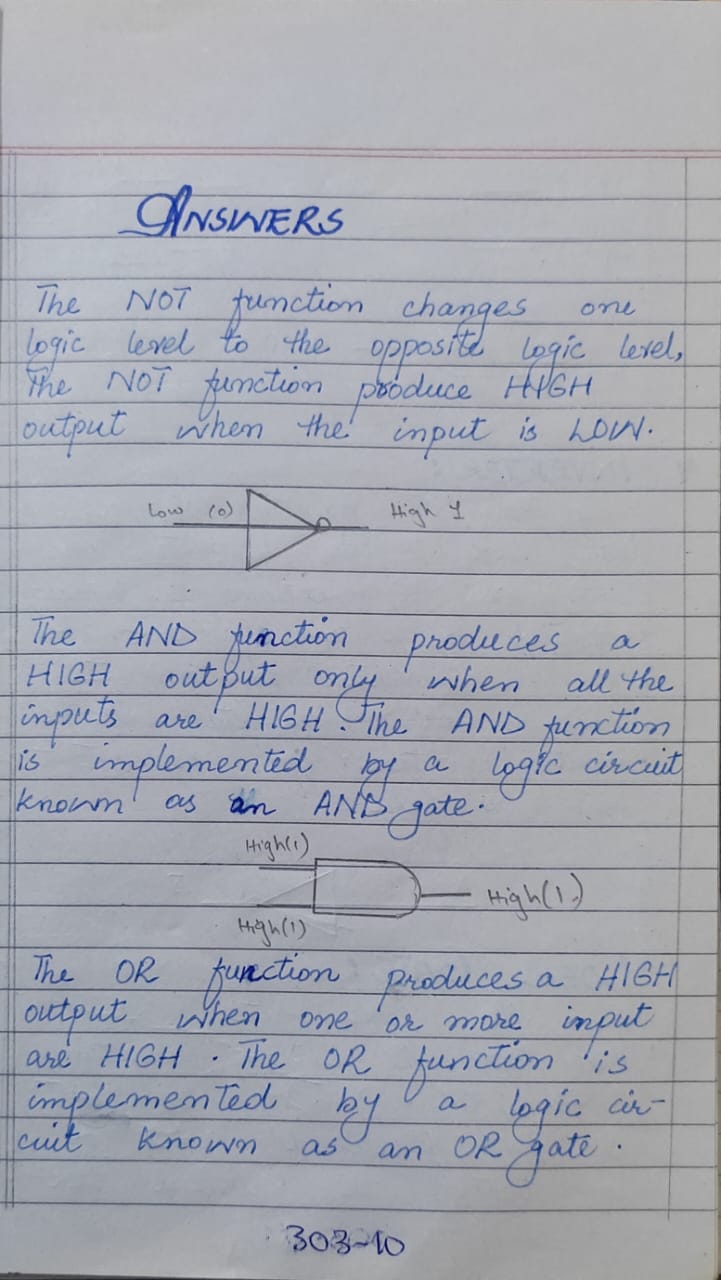 ANSWERS
The NOT function changes one
logic level to the opposite logic level,
The NOT function produce HIGH
output when the input is LOW.
Low (0) High 1
The AND function produces a
HIGH output only when all the
inputs are HIGH. The AND function
is implemented by a logic circuit
known as an AND gate.
High(1)
High(1)
High(1)
The OR function produces a HIGH
output when one or more input
are HIGH. The OR function is
implemented by a logic cir-
cuit known as an OR gate.
303-10